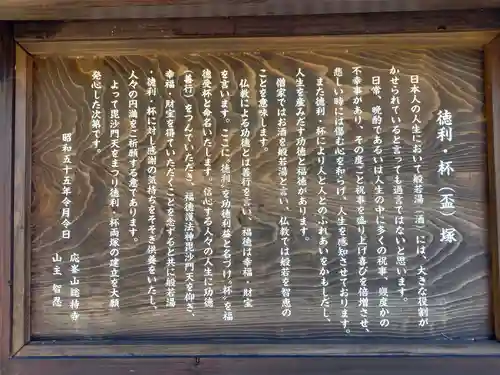 徳利・杯(盃)塚
日本人の人生において般若湯(酒)には、大きな役割が
かせられていると言っても過言ではないと思います。
日常、晩酌であるいは人生の中に多くの祝事、幾度かの
不幸事があり、その度ごと祝事を盛り上げ喜びを倍増させ、
悲しい時には傷む心を和らげ、人生を感知させております。
また徳利・杯により人と人とのふれあいをかもしだし、
人生を産みだす徳と福徳があります。
僧家ではお酒を般若湯と言い、仏教では般若を智恵の
ことを意味します。
仏教による功徳とは善行を言い、福徳は幸福・財宝
を言います。ここに"徳利"を功徳利益と名づけ"杯"を福
徳愛杯と命名いたします。信心する人々の人生に功徳
(善行)をつんでいただき、福徳護法神毘沙門天を仰ぎ、
幸福・財宝を得ていただくことを念ずると共に般若湯
・徳利・杯に対し感謝の気持ちをそそぎ供養をいたし、
人々の円満をご祈願する意であります。
よって毘沙門天をまつり徳利・杯両塚の建立を大願
発心した次第です。
昭和五十五年令月令日
応峯山総持寺
山主 智應